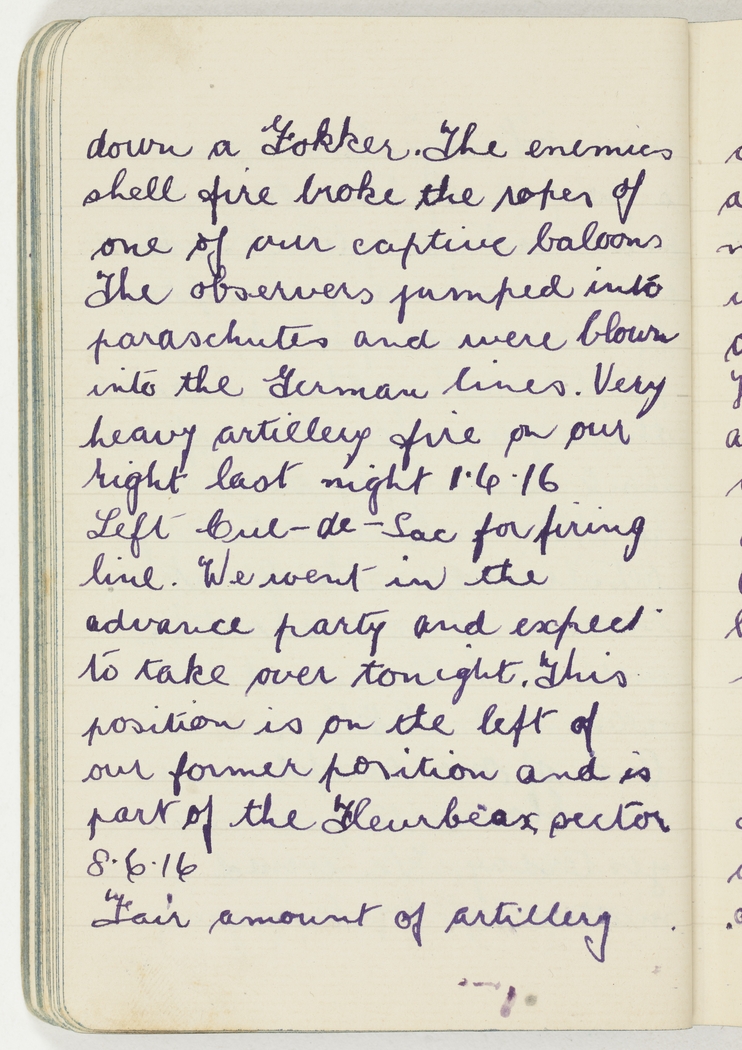 down a Fokker. The enemies
shell fire broke the ropes of
one of our captive baloons
The observers jumped into
paraschutes and were blown
into the German lines. Very
heavy artillery fire on our
right last night 1.6.16
Left Cul-de-Sac for firing
line. We went in the
advance party and expect
to take over tonight. This
position is on the left of
our former position and is
part of the Fleurbeax sector
8.6.16
Fair amount of artillery